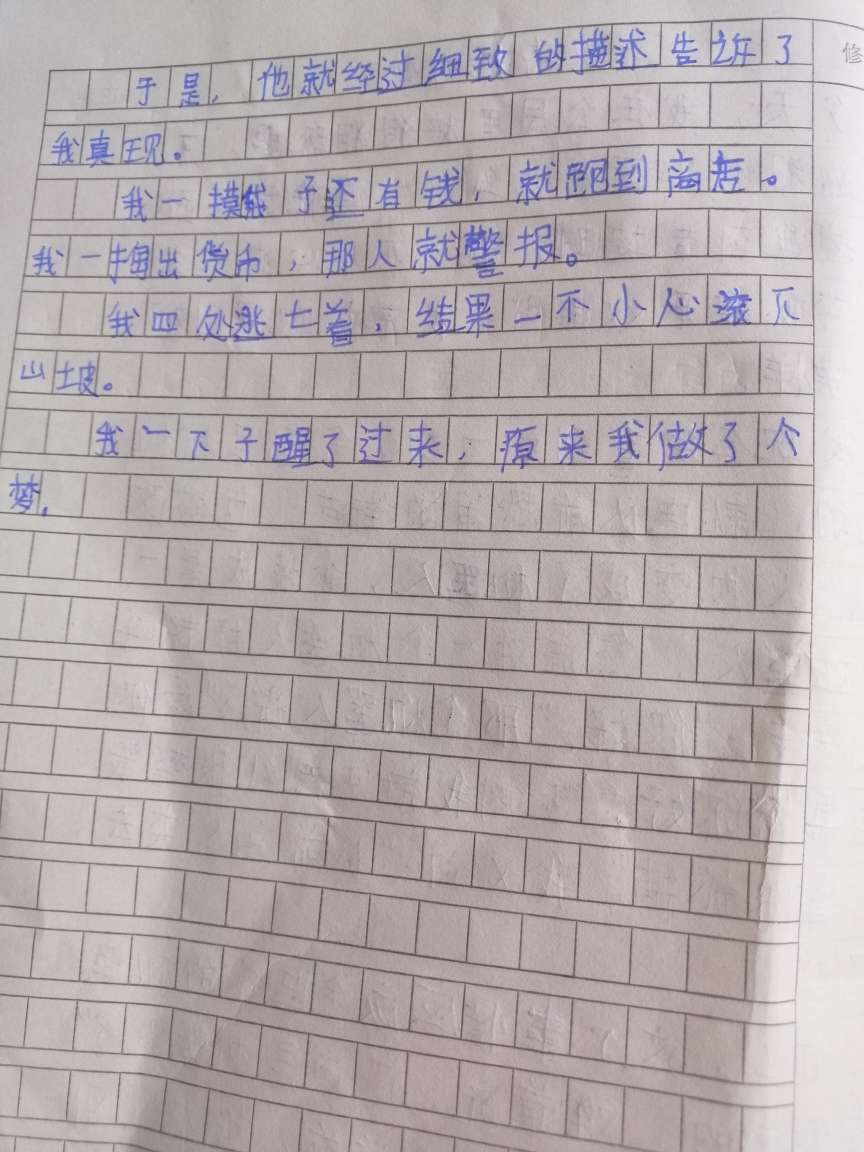 修
于是，他就经过细致的描述告诉了
我真现。
我一摸袋子还有钱，就跑到商店。
我一掏出货币，那人就警报。
我四处逃亡着，结果一不小心滚下
山坡。
我一下子醒了过来，原来我做了个
梦。